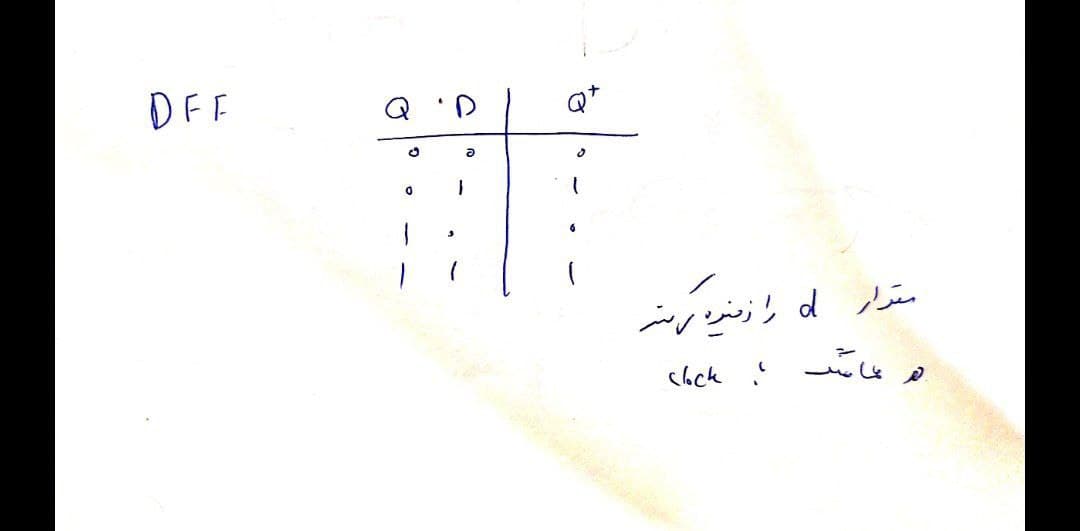 DFF
Q D Q+
0 0 0
0 1 1
1 0 0
1 1 1
مقدار d را ذخیره میکند
هماهنگ با clock